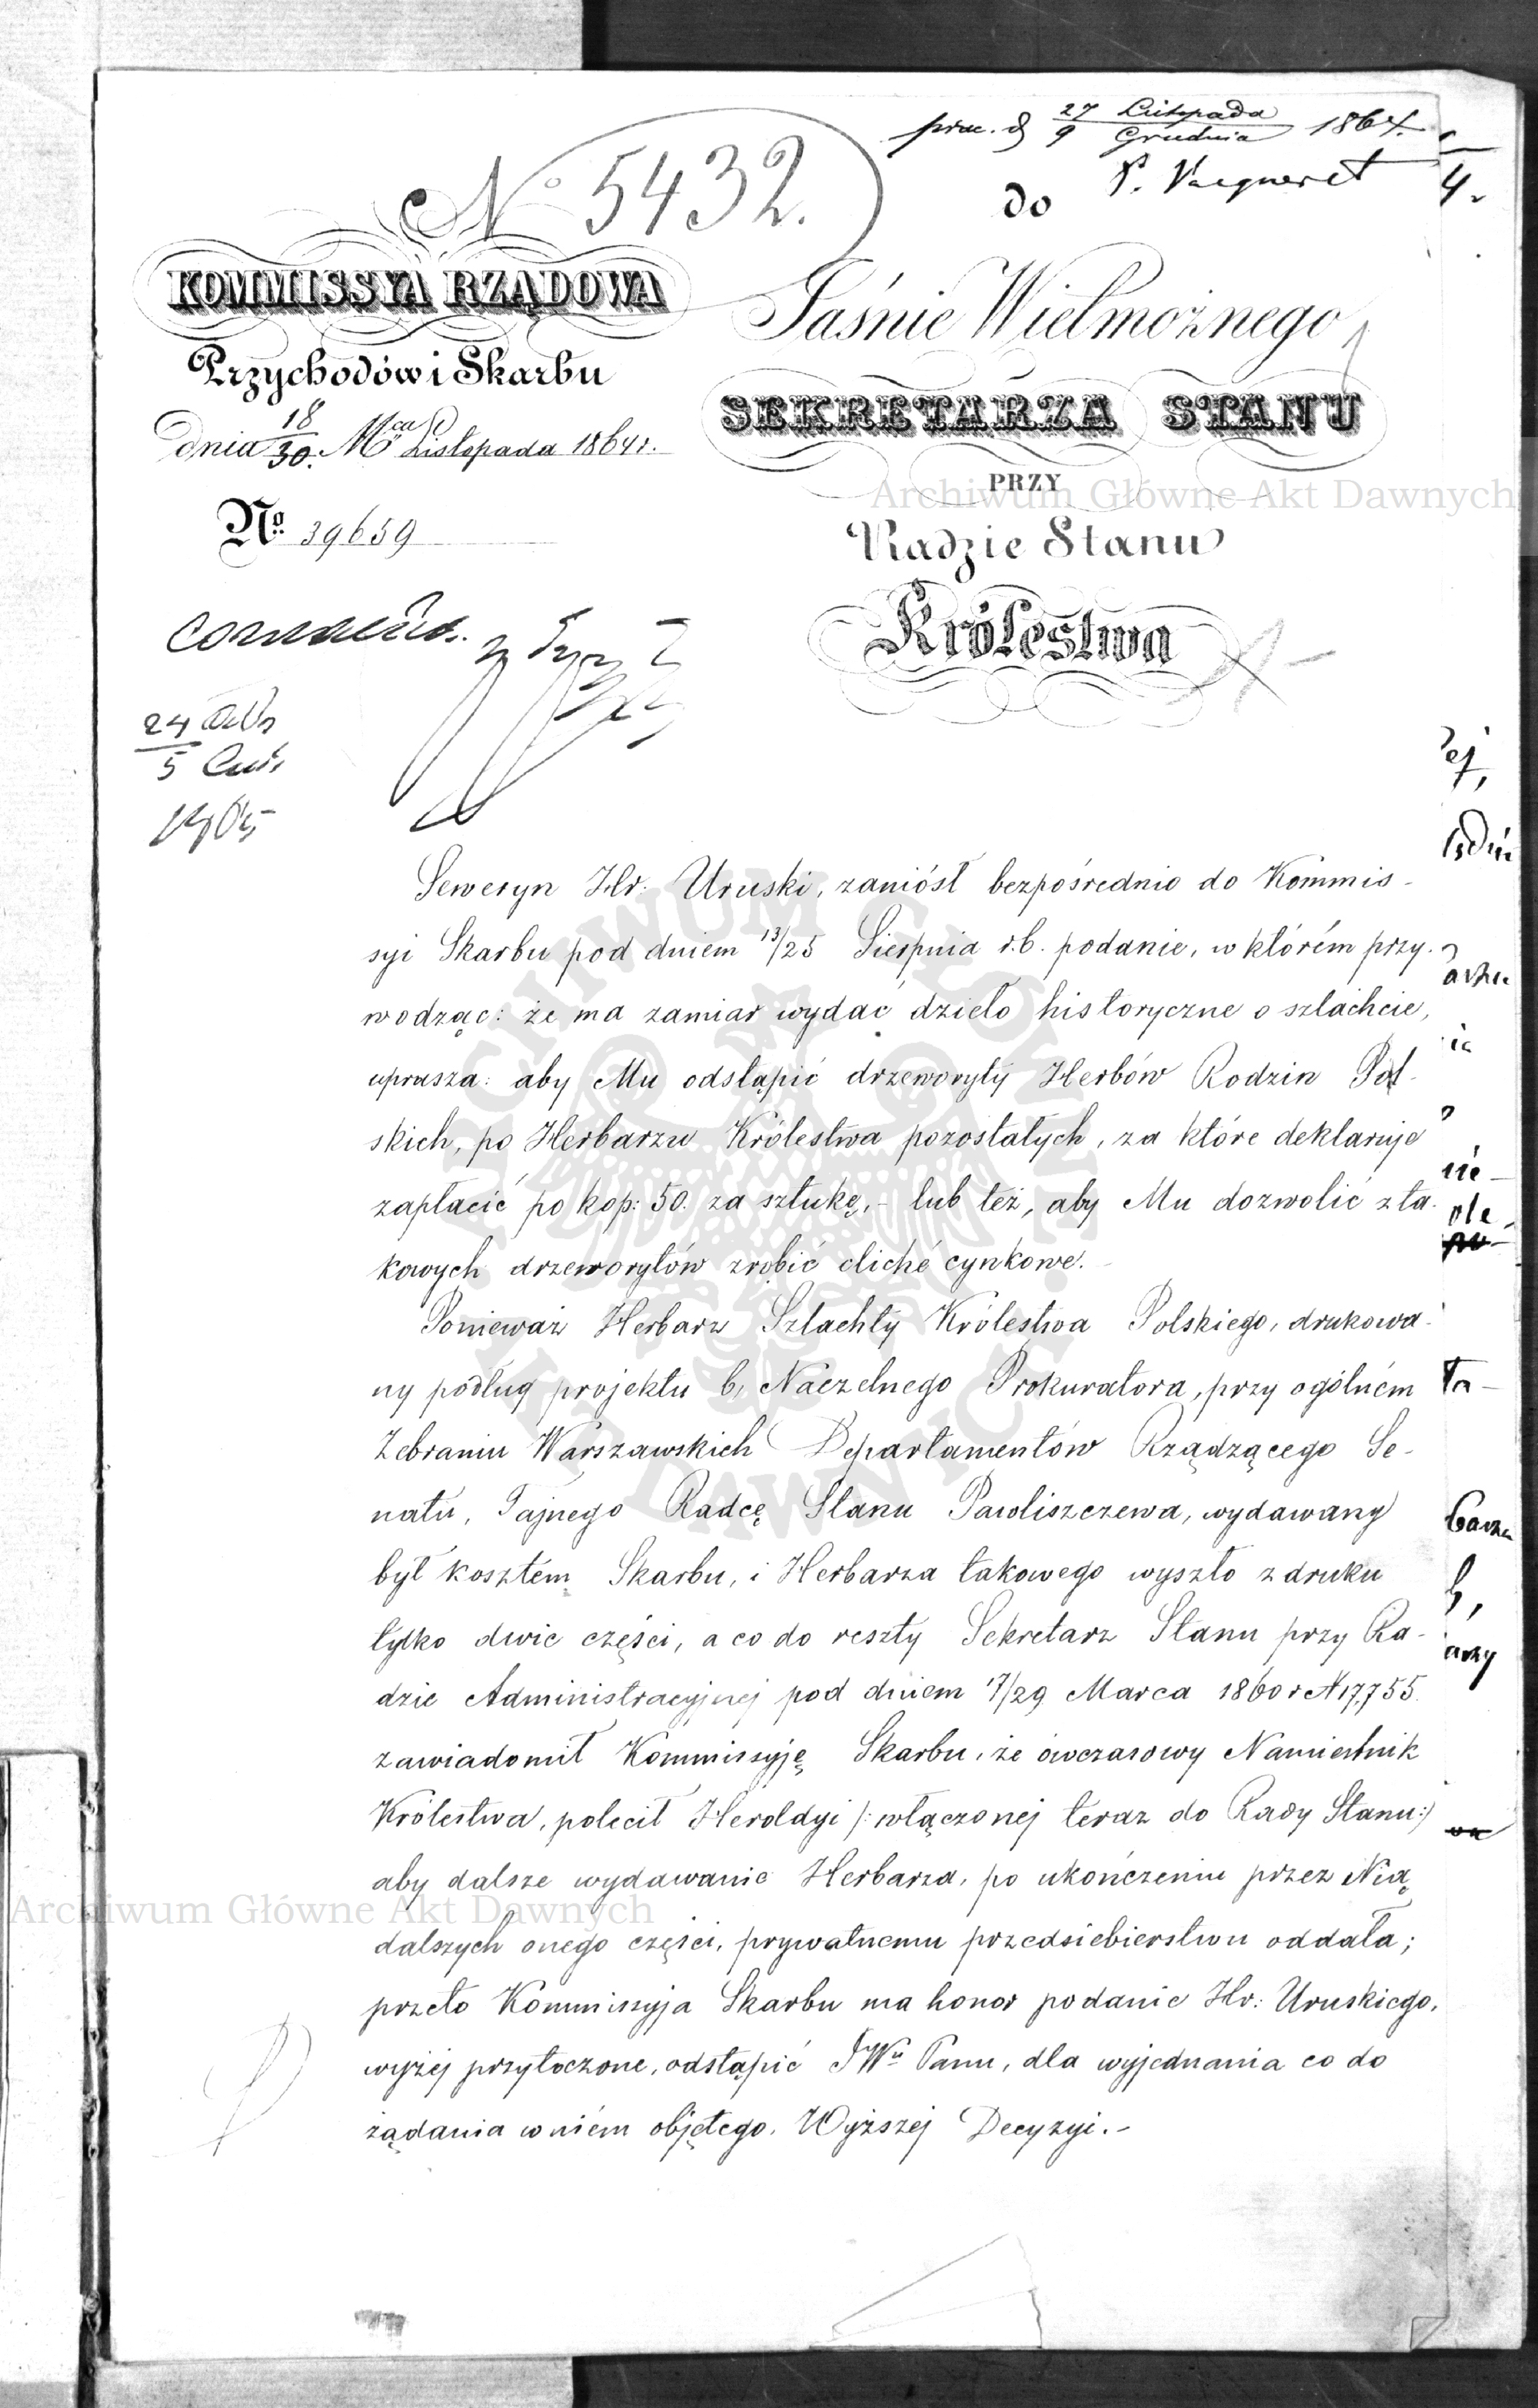 N° 5432.
27 Listopada
9 Grudnia 1864.
do
4.
KOMMISSYA RZĄDOWA
Przychodów i Skarbu
dnia 18/30. Mca Listopada 1864 r.
No. 39659
Jaśnie Wielmożnego
SEKRETARZA STANU
PRZY
Radzie Stanu
Królestwa
Archiwum Główne Akt Dawnych
24
5
1865
Seweryn Hr: Uruski, zaniósł bezpośrednio do Kommis-
syi Skarbu pod dniem 13/25 Sierpnia r.b. podanie, w którém przy-
wodząc: że ma zamiar wydać dzieło historyczne o szlachcie,
uprasza: aby Mu odstąpić drzeworyty Herbów Rodzin Pol-
skich, po Herbarzu Królestwa pozostałych, za które deklaruje
zapłacić po kop: 50. za sztukę,- lub też, aby Mu dozwolić z ta-
kowych drzeworytów zrobić cliché cynkowe.
Ponieważ Herbarz Szlachty Królestwa Polskiego, drukowa-
ny podług projektu b. Naczelnego Prokuratora, przy ogólném
Zebraniu Warszawskich Departamentów Rządzącego Se-
natu, Tajnego Radcę Stanu Pawliszczewa, wydawany
był kosztem Skarbu, i Herbarza takowego wyszło z druku
tylko dwie części, a co do reszty Sekretarz Stanu przy Ra-
dzie Administracyjnej pod dniem 17/29 Marca 1860 r N 17,755
zawiadomił Kommissyję Skarbu, że ówczasowy Namiestnik
Królestwa, polecił Heroldyi /: włączonej teraz do Rady Stanu:/
aby dalsze wydawanie Herbarza, po ukończeniu przez Nią
dalszych onego części, prywatnemu przedsiebierstwu oddała;
przeto Kommissyja Skarbu ma honor podanie Hr: Uruskiego,
wyżej przytoczone, odstąpić JWu Panu, dla wyjednania co do
żądania w niém objętego, Wyższej Decyzyi.-
Archiwum Główne Akt Dawnych